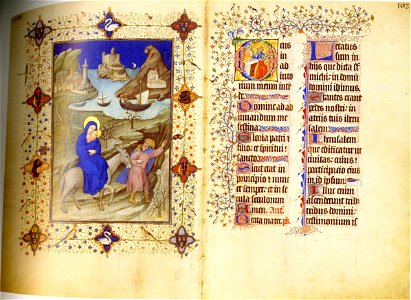 107
Deus
in
ad
iuto
rium meum inten
Domine ad ad
iuuandum me
Gloria patri
filio: et
spiritui sancto
Sicut erat in
principio et nunc
et semper: et in
secula seculorum
Amen. Ant
Beata mater. ps
Letatus
sum in
hijs que dicta st
michi: in domū
domini ibimus
Stantes erant
pedes nostri: in
atrijs tuis iheru
salem
Iherusalem
que edificatur ut
ciuitas: cuius
participatio eius
in id ipsum
Illuc enim
ascenderunt tribus
tribus domini:
testimonium is